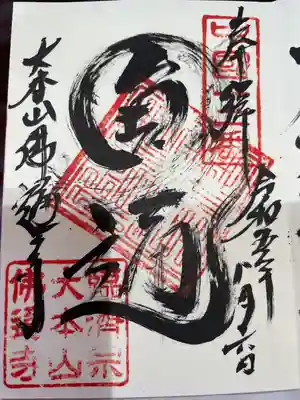 奉拜
令和五年八月六日
圓通
大本山佛通寺
臨濟宗
大本山
佛通寺